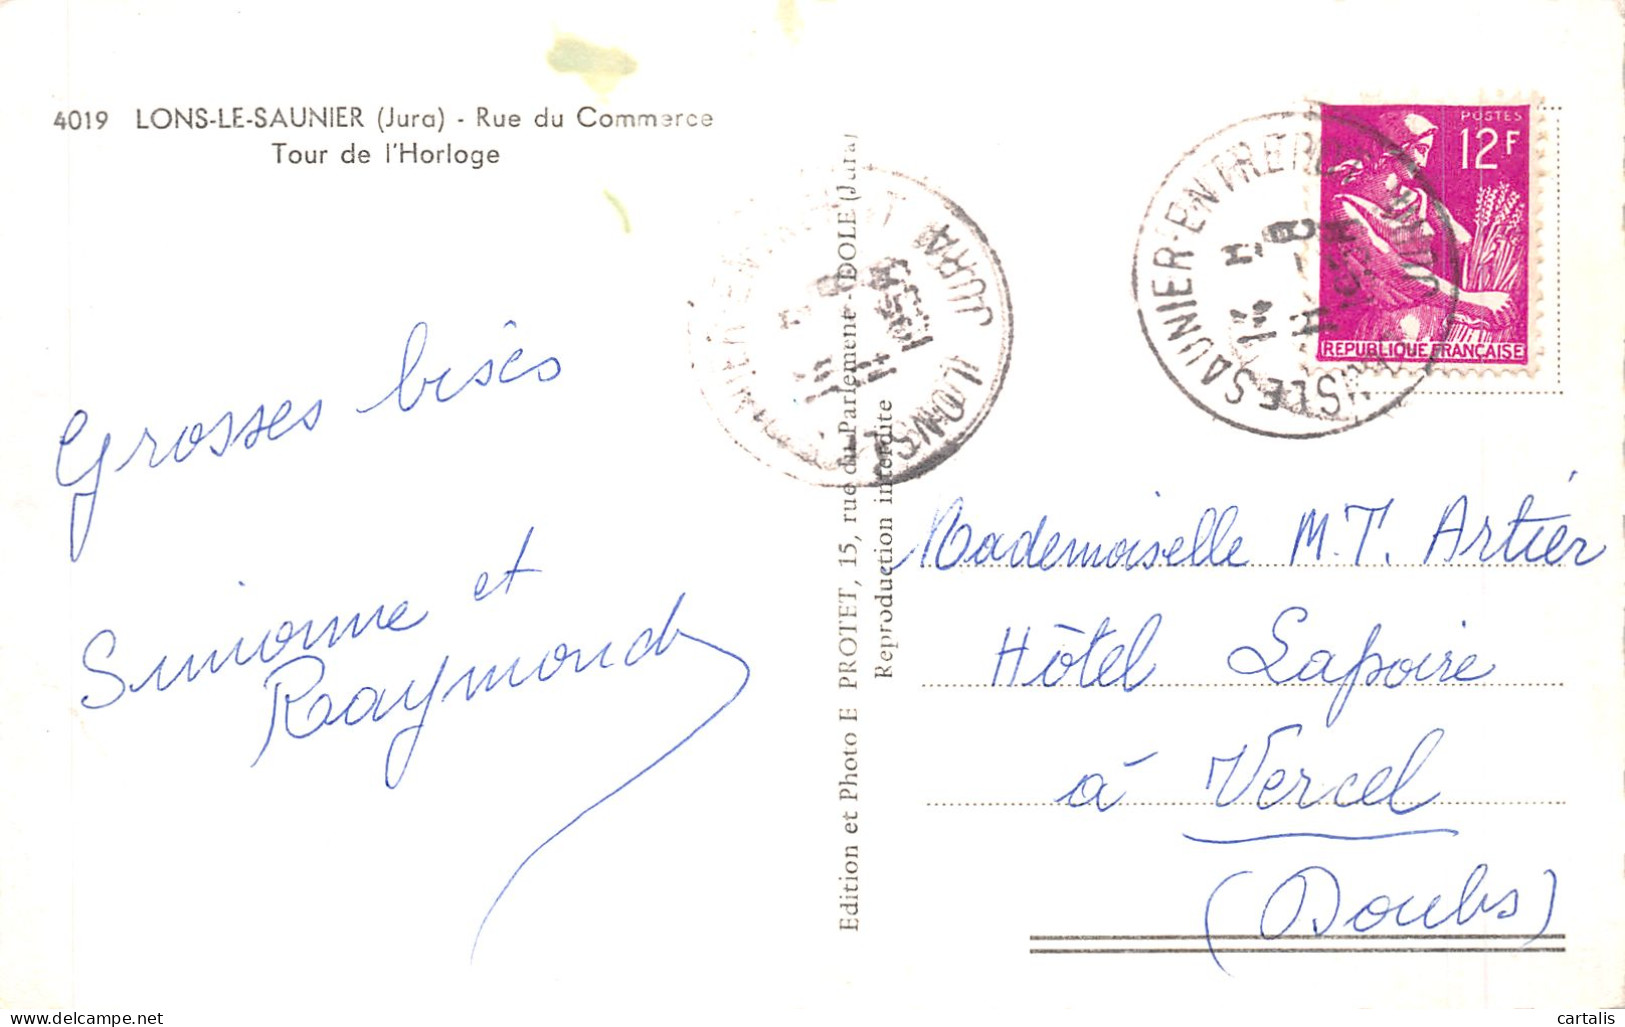 4019 LONS-LE-SAUNIER (Jura) - Rue du Commerce
Tour de l'Horloge
Grosses bises
Simonne et
Raymond
Edition et Photo E PROTET, 15, rue du Parlement - DOLE (Jura)
Reproduction interdite
LONS LE
JURA
LONS LE SAUNIER-ENTREPOT
POSTES
12F
REPUBLIQUE FRANÇAISE
Mademoiselle M.T. Artier
Hôtel Lapoire
à Vercel
(Doubs)
cartalis www.delcampe.net